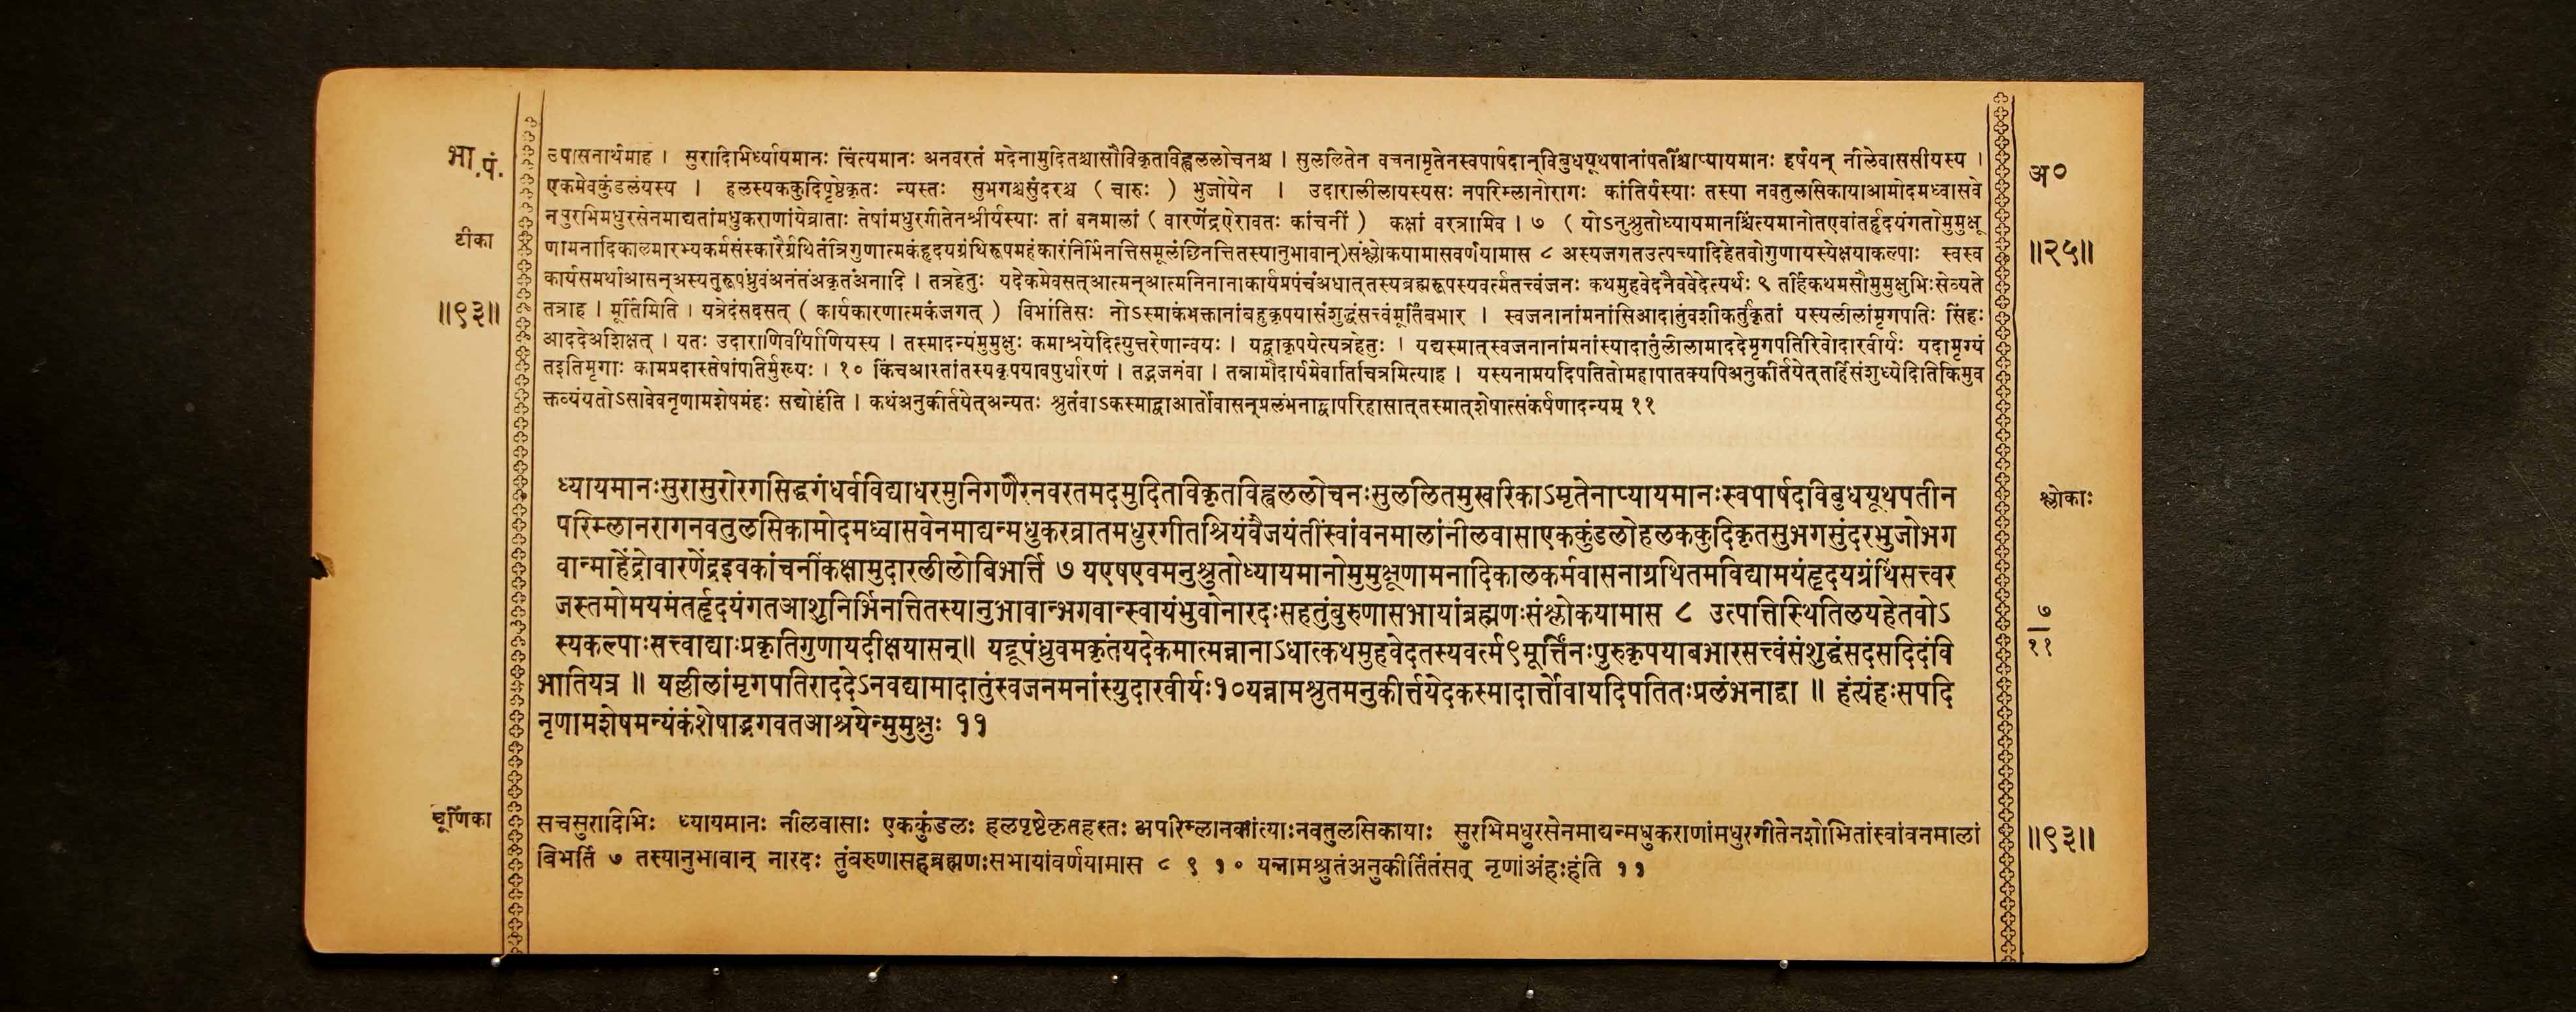 भा.पं.
टीका
॥९३॥
उपासनार्थमाह । सुरादिभिर्ध्यायमानः चिंत्यमानः अनवरतं मदेनामुदितश्चासौविकृताविह्वललोचनश्च । सुललितेन वचनामृतेनस्वपार्षदान्‌विबुधयूथपानांपतींश्चाप्यायमानः हर्षयन् नीलेवाससीयस्य ।
एकमेवकुंडलंयस्य । हलस्यककुदिपृष्ठेकृतः न्यस्तः सुभगश्चसुंदरश्च ( चारुः ) भुजोयेन । उदारालीलायस्यसः नपरिम्लानोरागः कांतिर्यस्याः तस्या नवतुलसिकायाआमोदमध्वासवे
नसुरभिमधुरसेनमाद्यतांमधुकराणांयेव्राताः तेषांमधुरगीतेनश्रीर्यस्याः तां वनमालां ( वारणेंद्रऐरावतः कांचनीं ) कक्षां वरत्रामिव । ७ ( योऽनुश्रुतोध्यायमानश्चिंत्यमानोतएवांतर्हृदयंगतोमुमुक्षू
णामनादिकालमारभ्यकर्मसंस्कारैर्ग्रथितंत्रिगुणात्मकंहृदयग्रंथिरूपमहंकारंनिर्भिनात्तिसमूलंछिनत्तितस्यानुभावान्)संश्लोकयामासवर्णयामास ८ अस्यजगतउत्पत्त्यादिहेतवोगुणायस्येक्षयाकल्पाः स्वस्व
कार्यसमर्थाआसन्‌अस्यतुरूपंध्रुवंअनंतंअकृतंअनादि । तत्रहेतुः यदेकमेवसत्‌आत्मन्‌आत्मनिनानाकार्यप्रपंचंअधात्‌तस्यब्रह्मरूपस्यवर्त्मतत्त्वंजनः कथमुहवेदनैववेदेत्यर्थः ९ तर्हिकथमसौमुमुक्षुभिःसेव्यते
तत्राह । मूर्तिमिति । यत्रेदंसदसत् ( कार्यकारणात्मकंजगत् ) विभांतिसः नोऽस्माकंभक्तानांबहुकृपयासंशुद्धंसत्त्वंमूर्तिंबभार । स्वजनानांमनांसिआदातुंवशीकर्तुंकृतां यस्यलीलांमृगपतिः सिंहः
आददेअशिक्षत् । यतः उदाराणिवीर्याणियस्य । तस्मादन्यंमुमुक्षुः कमाश्रयेदित्युत्तरेणान्वयः । यद्वाकृपयेत्यत्रहेतुः । यद्यस्मात्‌स्वजनानांमनांस्यादातुंलीलामाददेमृगपतिरिवोदारवीर्यः यदामृग्यं
तइतिमृगाः कामप्रदास्तेषांपतिर्मुख्यः । १० किंचआस्तांतस्यकृपयावपुर्धारणं । तद्भजनंवा । तन्नामौदार्यमेवार्तिचित्रमित्याह । यस्यनामयदिपतितोमहापातक्यपिअनुकीर्तयेत्‌तर्हिसंशुध्येदितिकिमुव
क्तव्यंयतोऽसावेवनृणामशेषमंहः सद्योहंति । कथंअनुकीर्तयेत्‌अन्यतः श्रुतंवाऽकस्माद्वाआर्तोवासन्‌प्रलंभनाद्वापरिहासात्‌तस्मात्‌शेषात्संकर्षणादन्यम् ११
अ०
॥२५॥
ध्यायमानःसुरासुरोरगसिद्धगंधर्वविद्याधरमुनिगणैरनवरतमदमुदिताविकृतविह्वललोचनःसुललितमुखरिकाऽमृतेनाप्यायमानःस्वपार्षदविबुधयूथपतीन
परिम्लानरागनवतुलसिकामोदमध्वासवेनमाद्यन्मधुकरव्रातमधुरगीतश्रियंवैजयंतींस्वांवनमालांनीलवासाएककुंडलोहलककुदिकृतसुभगसुंदरभुजोभग
वान्माहेंद्रोवारणेंद्रइवकांचनींकक्षामुदारलीलोबिभर्त्ति ७ यएषएवमनुश्रुतोध्यायमानोमुमुक्षूणामनादिकालकर्मवासनाग्रथितमविद्यामयंहृदयग्रंथिंसत्त्वर
जस्तमोमयमंतर्हृदयंगतआशुनिर्भिनत्तितस्यानुभावान्भगवान्स्वायंभुवोनारदःसहतुंबुरुणासभायांब्रह्मणःसंश्लोकयामास ८ उत्पत्तिस्थितिलयहेतवोऽ
स्यकल्पाःसत्त्वाद्याःप्रकृतिगुणायदीक्षयासन्॥ यद्रूपंध्रुवमकृतंयदेकमात्मन्नानाऽधात्कथमुहवेदतस्यवर्त्म९मूर्त्तिंनःपुरुकृपयाबभारसत्त्वंसंशुद्धंसदसदिदंवि
भातियत्र ॥ यल्लीलांमृगपतिराददेऽनवद्यामादातुंस्वजनमनांस्युदारवीर्यः१०यन्नामश्रुतमनुकीर्त्तयेदकस्मादार्त्तोवायदिपतितःप्रलंभनाद्वा ॥ हंत्यंहःसपदि
नृणामशेषमन्यंकंशेषाद्भगवतआश्रयेन्मुमुक्षुः ११
श्लोकाः
७
११
चूर्णिका
सचसुरादिभिः ध्यायमानः नीलवासाः एककुंडलः हलपृष्ठेकृतहस्तः अपरिम्लानकांत्याःनवतुलसिकायाः सुरभिमधुरसेनमाद्यन्मधुकराणांमधुरगीतेनशोभितांस्वांवनमालां
बिभर्ति ७ तस्यानुभावान् नारदः तुंबरुणासहब्रह्मणःसभायांवर्णयामास ८ ९ १० यन्नामश्रुतंअनुकीर्तितंसत् नृणांअंहःहंति ११
॥९३॥